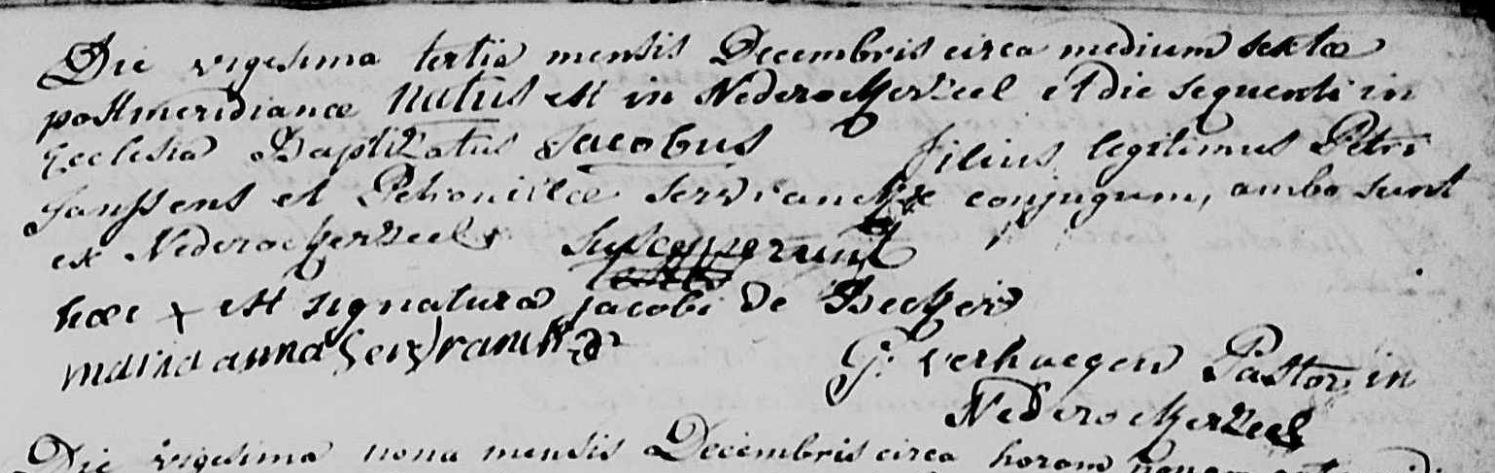 Die vigesima tertia mensis Decembris circa medium sextæ
postmeridianæ natus est in Nederockerzeel et die sequenti in
Ecclesia Baptizatus Jacobus filius legitimus Petri
Janssens et Petronillæ Servranckx conjugum, ambo sunt
ex Nederockerzeel. Susceperunt
hæc + est signatura jacobi de Becker
maria anna Servranckx
G. Verhaegen Pastor in
Nederockerzeel
Die vigesima nona mensis Decembris circa horam nonam